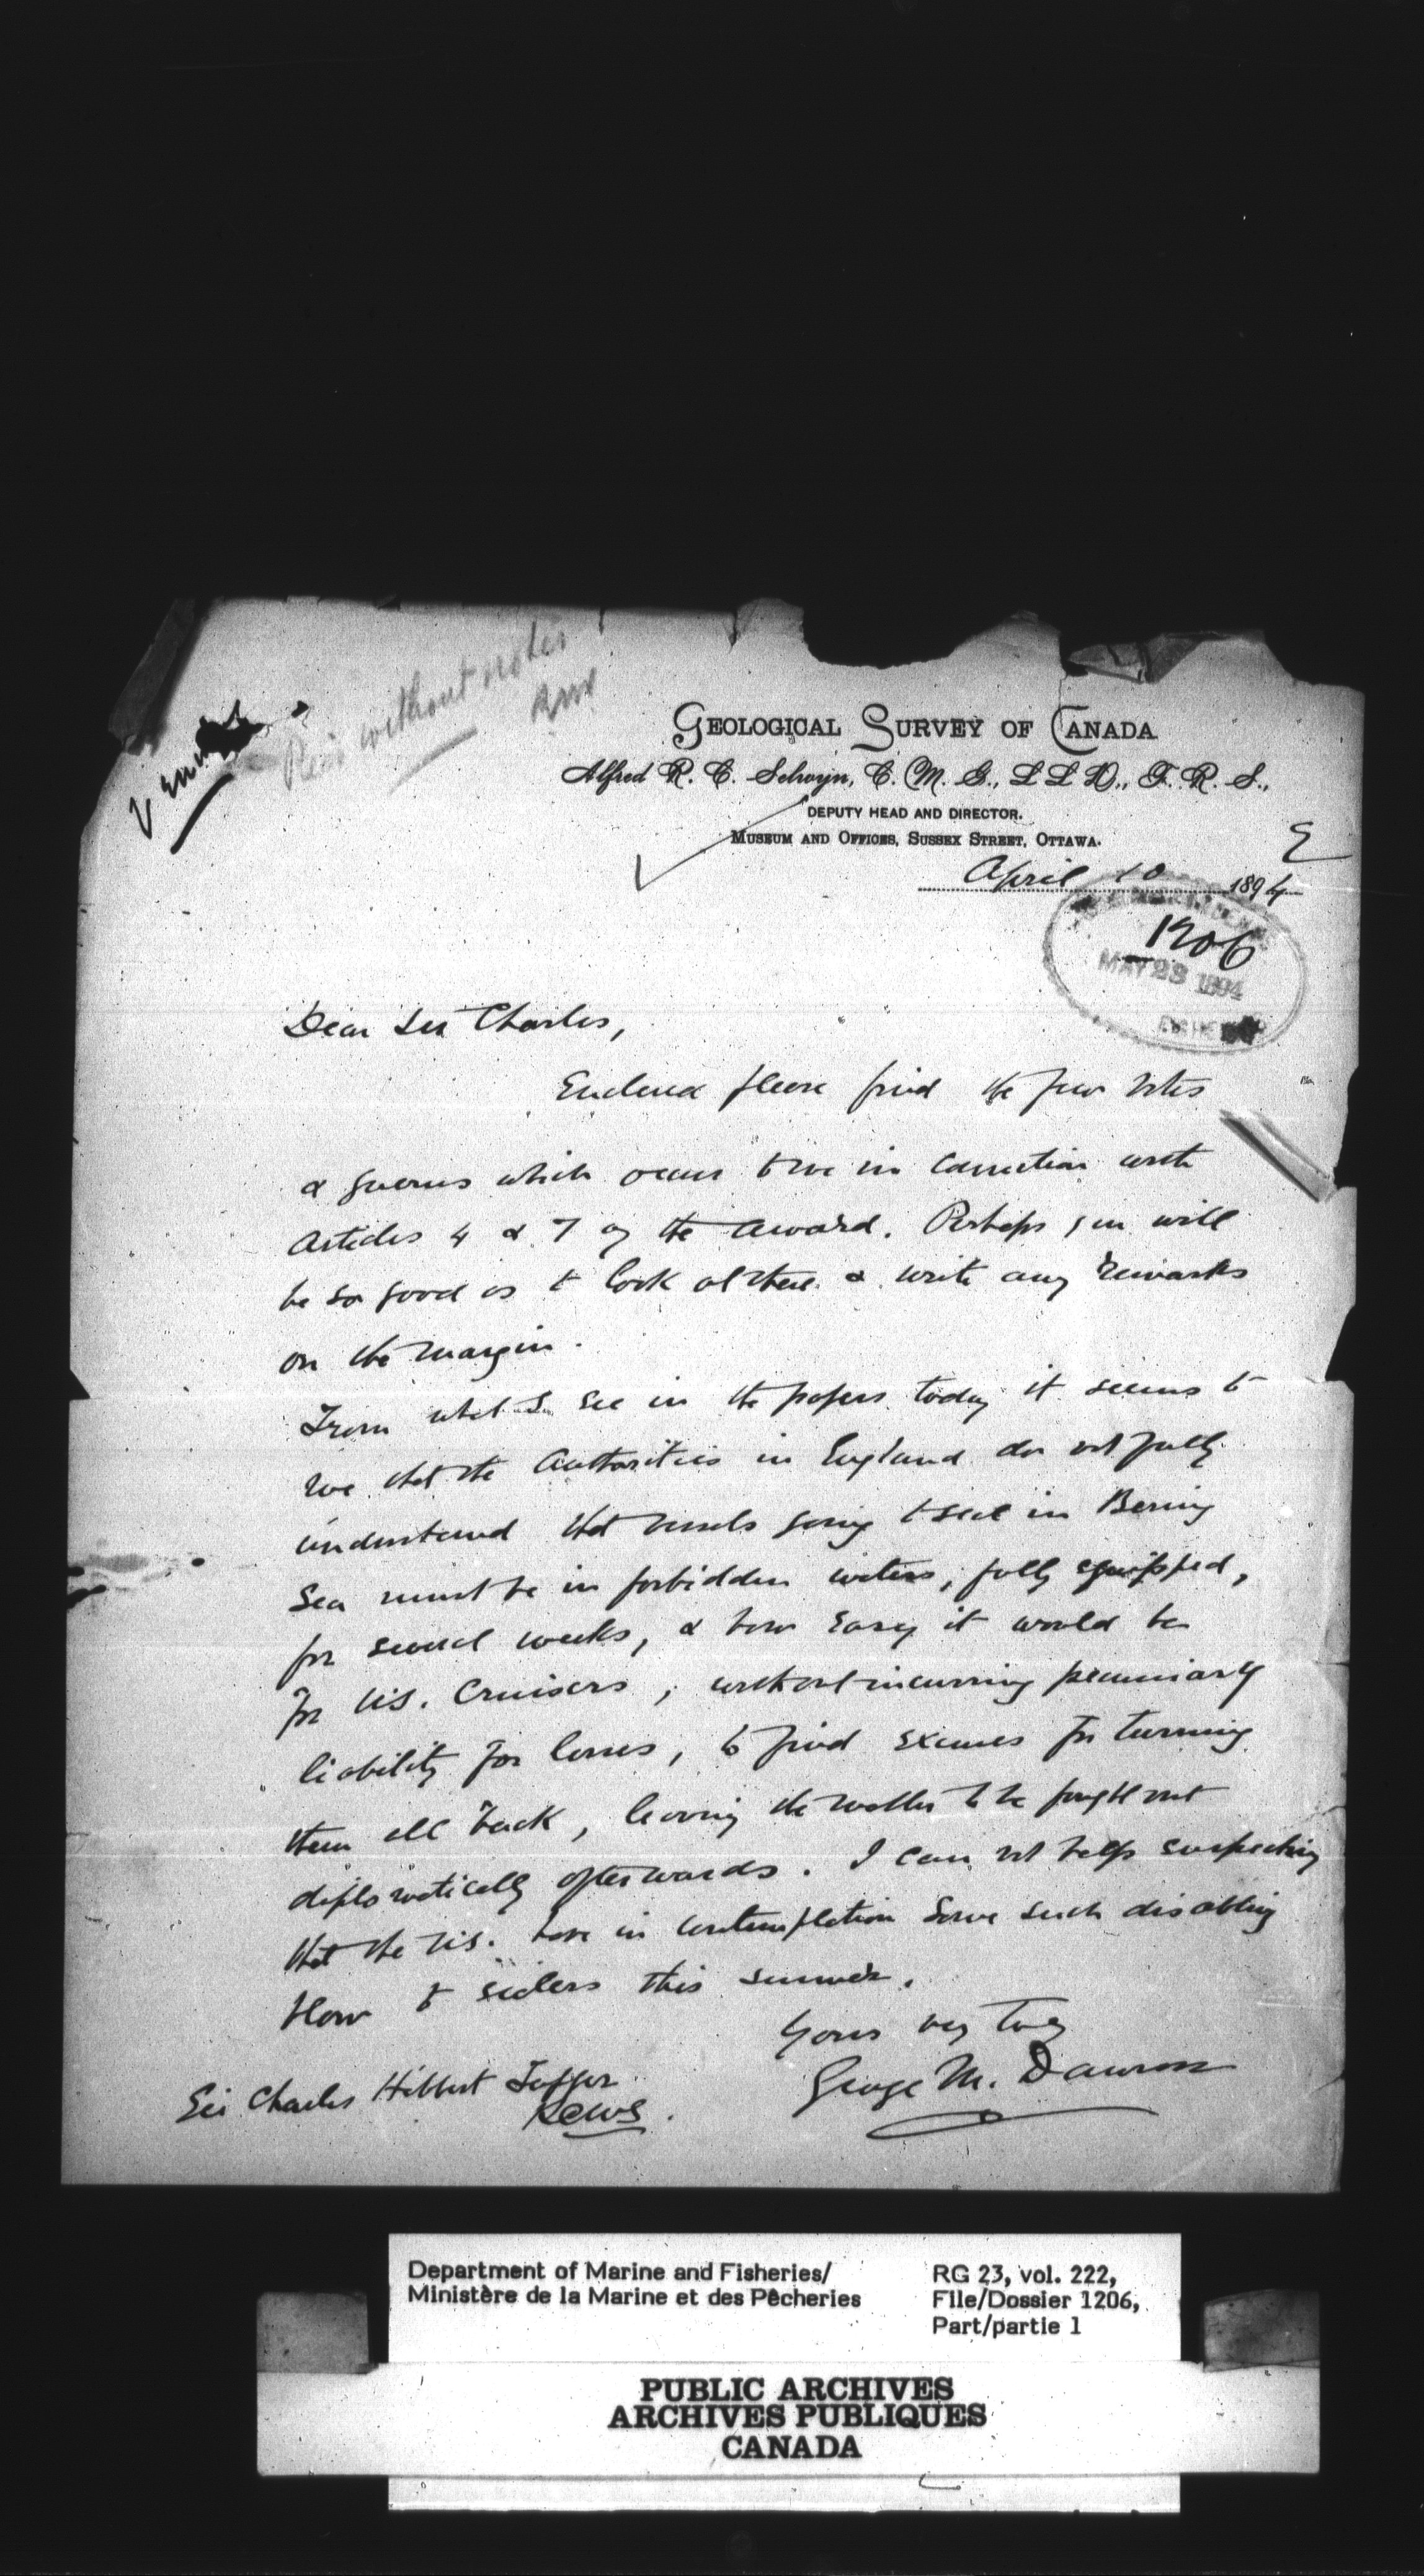 Rec'd without notes
GEOLOGICAL SURVEY OF CANADA
Alfred R. C. Selwyn, C. M. G., L L D., F. R. S.,
DEPUTY HEAD AND DIRECTOR.
MUSEUM AND OFFICES, SUSSEX STREET, OTTAWA.
April 10 1894
1206
MAY 23 1894
Dear Sir Charles,
Enclosed please find the few notes
& queries which occur to me in connection with
Articles 4 & 7 of the Award. Perhaps you will
be so good as to look at these & write any remarks
on the margin.
From what I see in the papers today it seems to
me that the Authorities in England do not fully
understand that vessels going to seal in Bering
Sea must be in forbidden waters, fully equipped,
for several weeks, & how easy it would be
for U.S. Cruisers, without incurring pecuniary
liability for losses, to find excuses for turning
them all back, leaving the matter to be fought out
diplomatically afterwards. I can not help suspecting
that the U.S. have in contemplation some such disabling
blow to sealers this summer.
Yours very truly
George M. Dawson
Sir Charles Hibbert Tupper
KCMG.
Department of Marine and Fisheries/
Ministère de la Marine et des Pêcheries
RG 23, vol. 222,
File/Dossier 1206,
Part/partie 1
PUBLIC ARCHIVES
ARCHIVES PUBLIQUES
CANADA